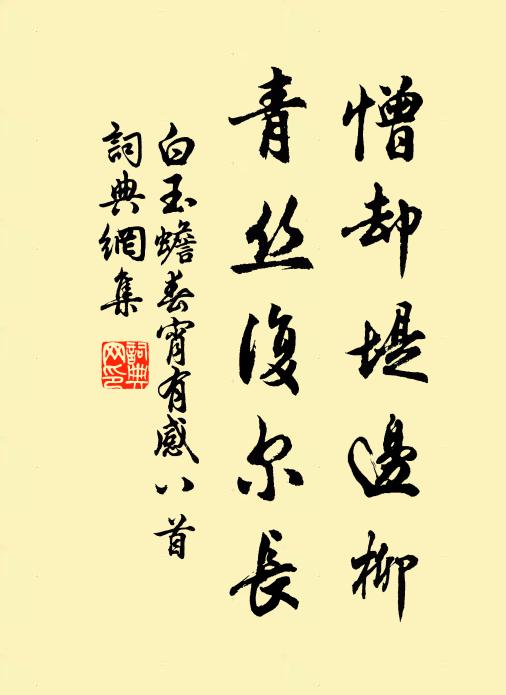 憎却堤邊柳
青丝復尔長
白玉蟾春宵有感八首
詞典網集
詞典网印